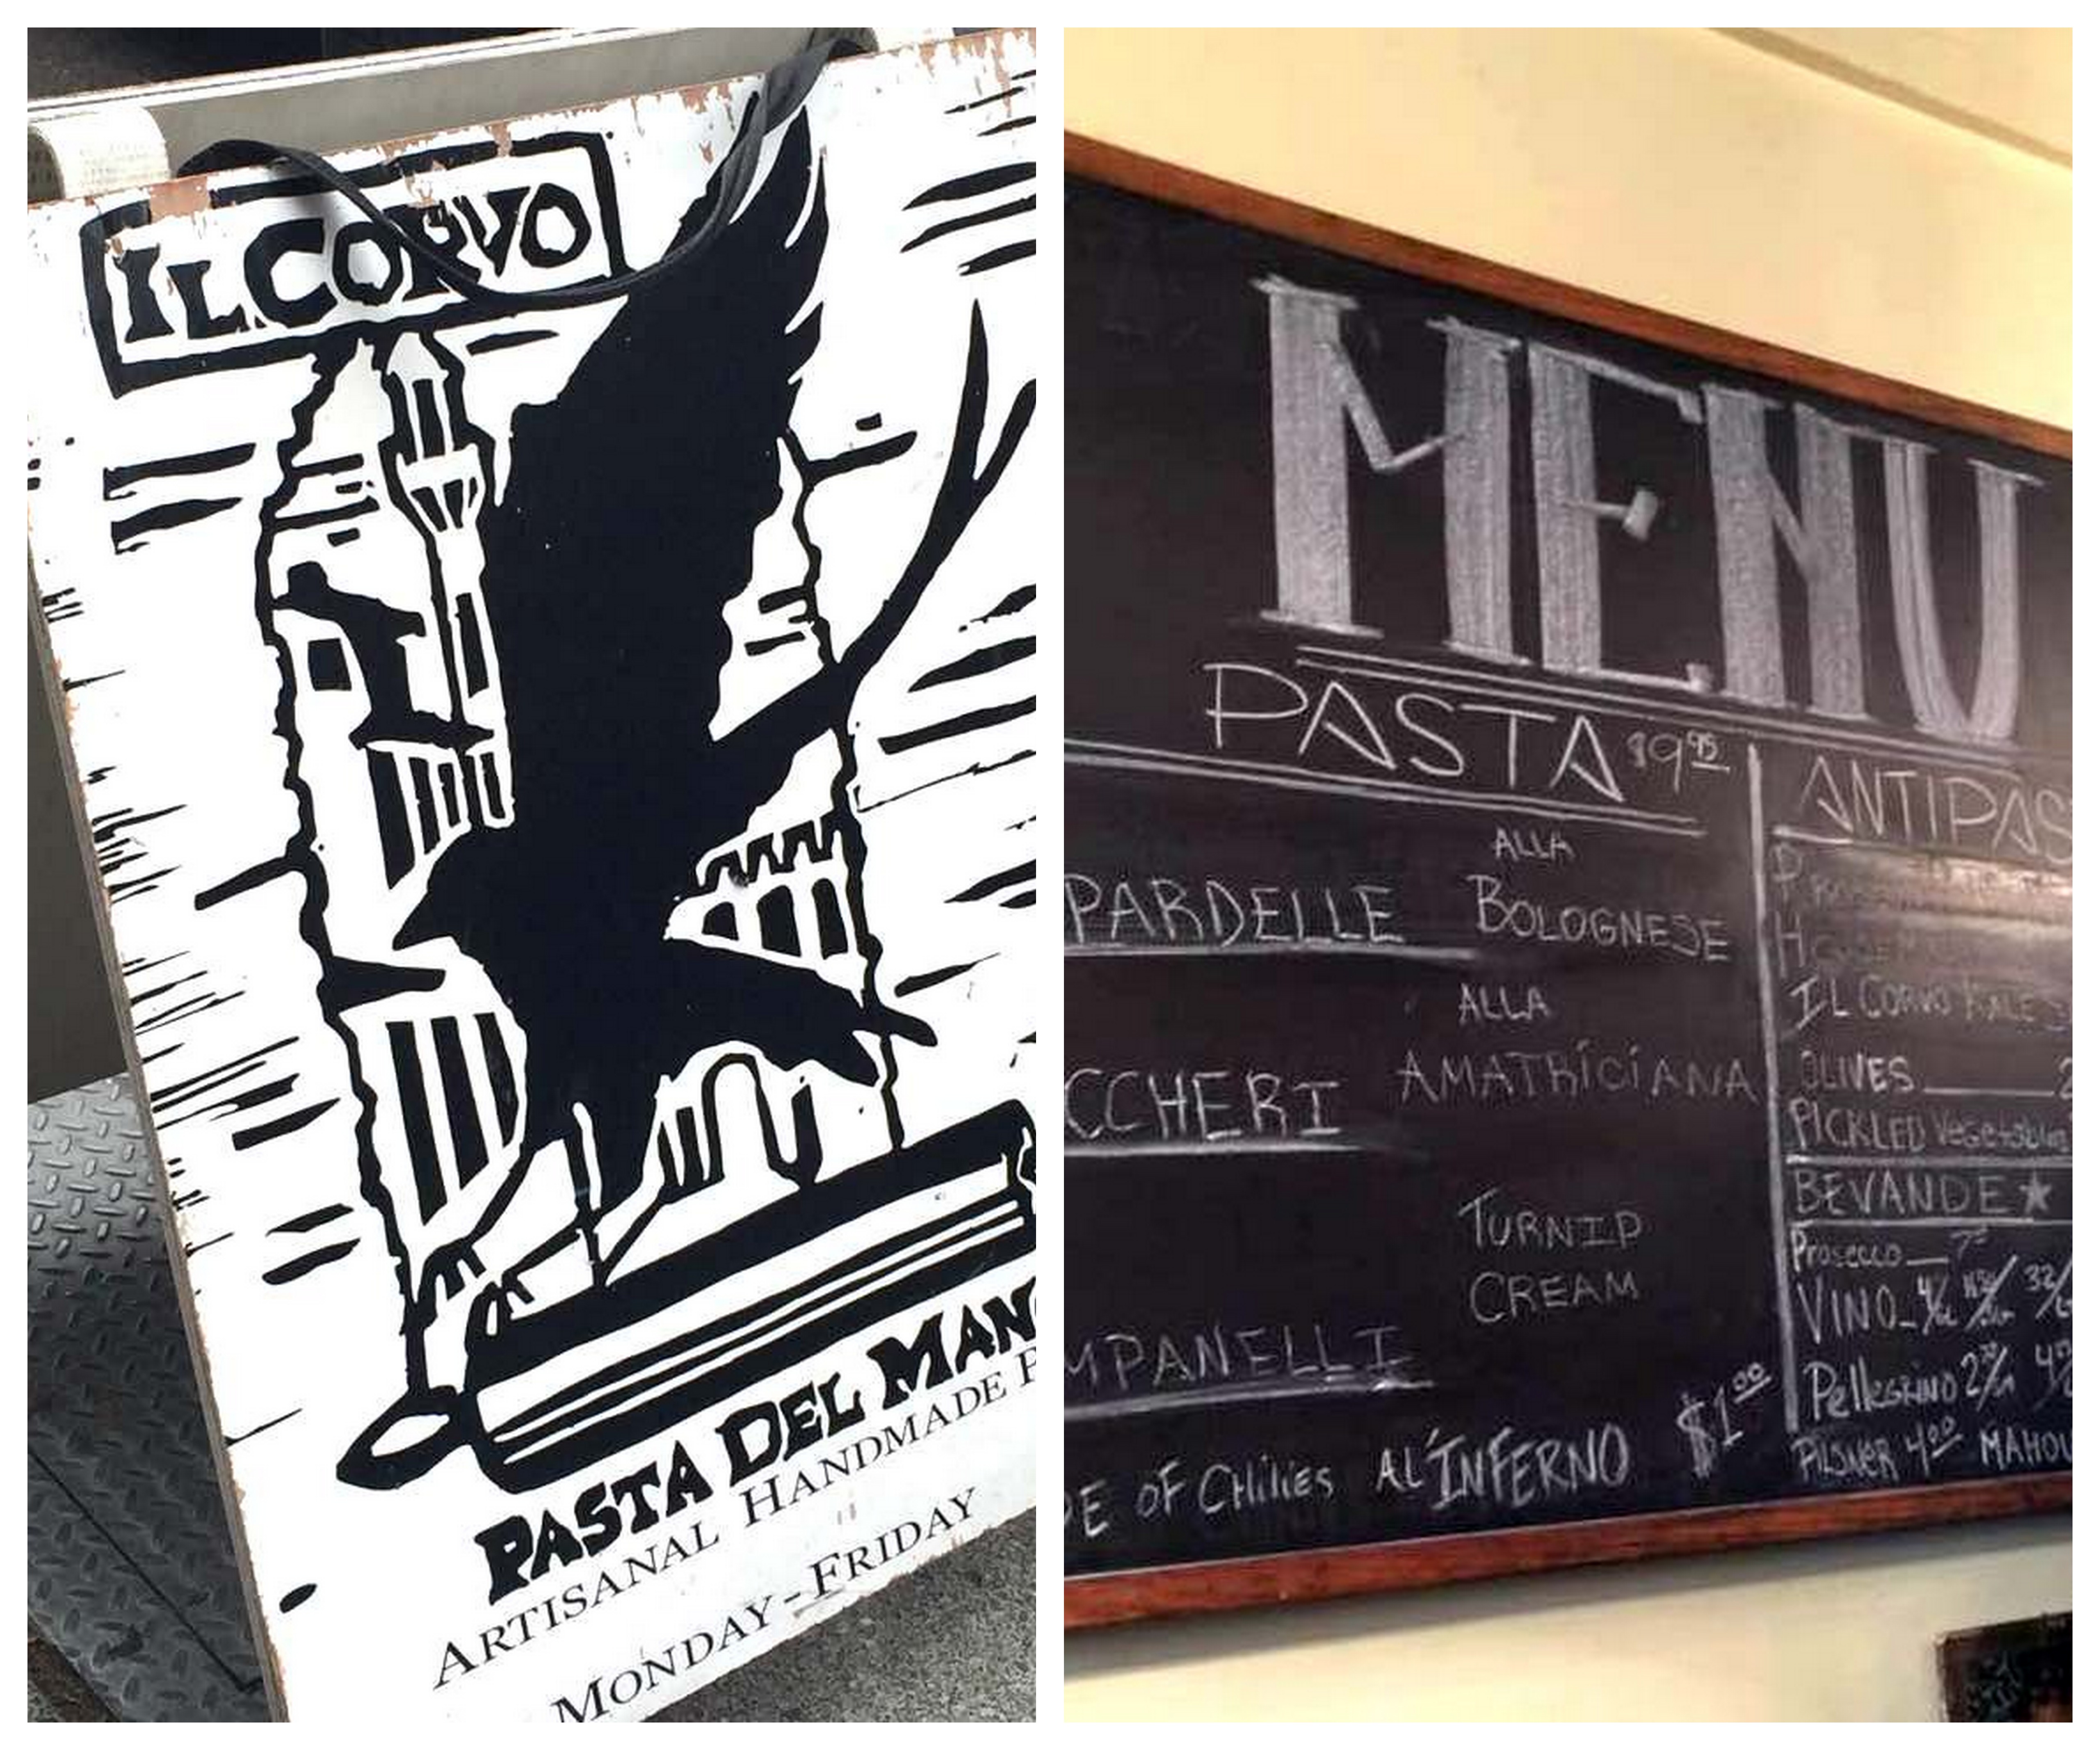 IL CORVO
PASTA DEL MAN
ARTISANAL HANDMADE P
MONDAY-FRIDAY
MENU
PASTA $9.95
PARDELLE
ALLA
BOLOGNESE
CCHERI
ALLA
AMATRICIANA
MPANELLI
TURNIP
CREAM
DE OF CHILIES AL'INFERNO $1.00
ANTIPAS
IL CORVO KALE S
OLIVES 2
PICKLED Vegetable
BEVANDE ★
Prosecco
VINO 32/
Pellegrino
PILSNER 4.00 MAHOU